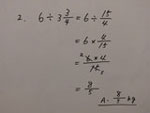 2. 6 ÷ 3 3/4 = 6 ÷ 15/4
= 6 × 4/15
= ²6 × 4/15 5
= 8/5
A. 8/5 kg